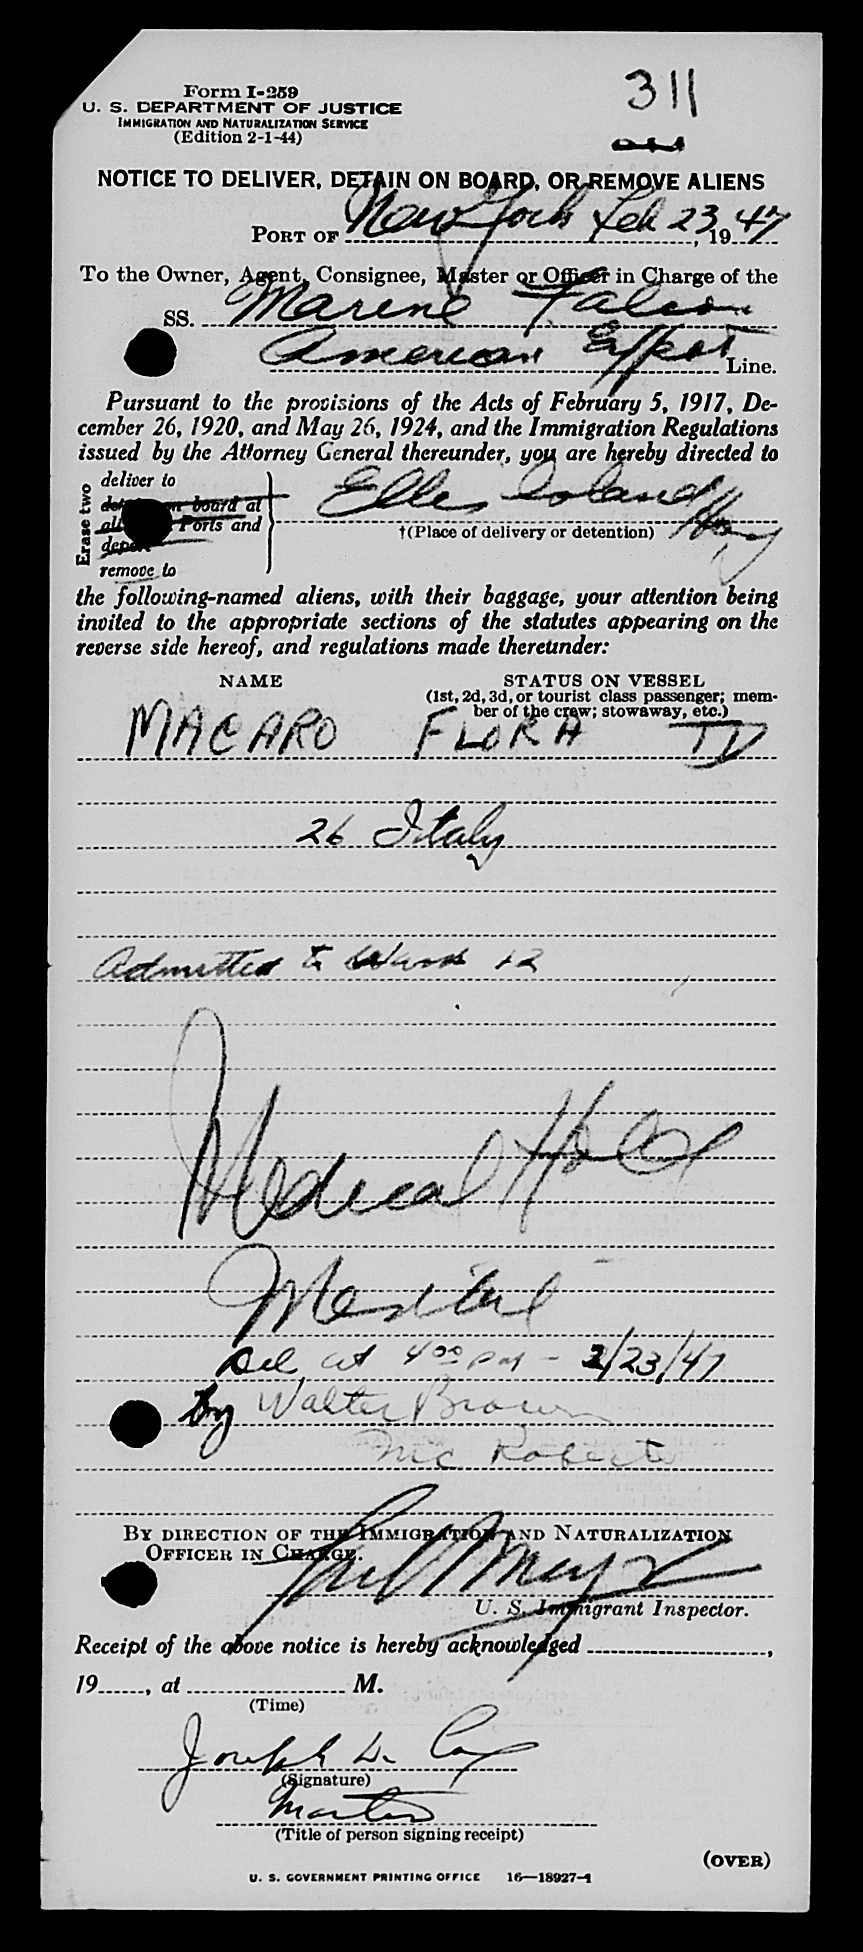 Form I-259
311
U. S. DEPARTMENT OF JUSTICE
IMMIGRATION AND NATURALIZATION SERVICE
(Edition 2-1-44)
NOTICE TO DELIVER, DETAIN ON BOARD, OR REMOVE ALIENS
PORT OF New York Feb 23, 1947
To the Owner, Agent, Consignee, Master or Officer in Charge of the
SS. Marine Falcon
American Export Line.
Pursuant to the provisions of the Acts of February 5, 1917, De-
cember 26, 1920, and May 26, 1924, and the Immigration Regulations
issued by the Attorney General thereunder, you are hereby directed to
Erase two
deliver to
on board at
Ports and
remove to
Ellis Island
†(Place of delivery or detention)
the following-named aliens, with their baggage, your attention being
invited to the appropriate sections of the statutes appearing on the
reverse side hereof, and regulations made thereunder:
NAME STATUS ON VESSEL
(1st, 2d, 3d, or tourist class passenger; mem-
ber of the crew; stowaway, etc.)
MACARO FLORA
26 Italy
Admitted to Ward 12
Medical Hold
Mental
Del at 4 00 PM - 2/23/47
by Walter Brown
Mc Roberts
BY DIRECTION OF THE IMMIGRATION AND NATURALIZATION
OFFICER IN CHARGE.
U. S. Immigrant Inspector.
Receipt of the above notice is hereby acknowledged ,
19 , at M.
(Time)
Joseph
(Signature)
Master
(Title of person signing receipt)
(OVER)
U. S. GOVERNMENT PRINTING OFFICE 16—18927-1